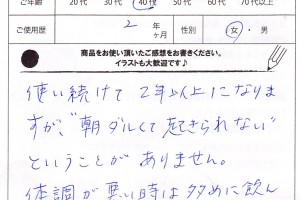 ご年齢 20代 30代 40代 50代 60代 70代以上
ご使用歴 2 年 ヶ月 性別 女・男
商品をお使い頂いたご感想をお書きください。
イラストも大歓迎です♪
使い続けて2年以上になりま
すが、“朝ダルくて起きられない”
ということがありません。
体調が悪い時は多めに飲ん